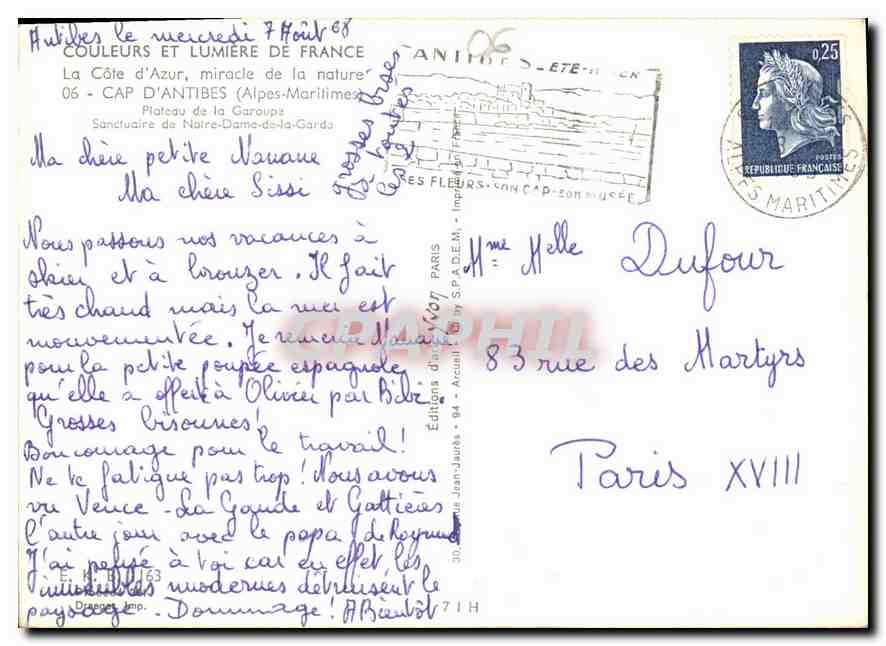 Antibes le mercredi 7 Août 68
COULEURS ET LUMIÈRE DE FRANCE
La Côte d'Azur, miracle de la nature
06 - CAP D'ANTIBES (Alpes-Maritimes)
Plateau de la Garoupe
Sanctuaire de Notre-Dame-de-la-Garde
Ma chère petite Nanane
Ma chère Sissi
Grosses bises
à toutes
les 2
Nous passons nos vacances à
skier et à bronzer. Il fait
très chaud mais la mer est
mouvementée. Je remercie Nanane
pour la petite poupée espagnole
qu'elle a offert à Olivier par Bibi.
Grosses bisounes!
Bon courage pour le travail!
Ne te fatigue pas trop! Nous avons
vu Vence - La Gaude et Gattières
l'autre jour avec le papa de Raymond
J'ai pensé à toi car en effet les
immeubles modernes détruisent le
paysage. Dommage! A Bientôt
E. K. B. 1163
Draeger Imp.
71H
Éditions d'art Yvon PARIS
30, Avenue Jean-Jaurès - 94 - Arcueil - by S.P.A.D.E.M. - Imprimé en France
06
ANTIBES - ETE-HIVER
SES FLEURS - SON CAP - SON MUSÉE
0,25
POSTES
RÉPUBLIQUE FRANÇAISE
ALPES MARITIMES
Mme Melle Dufour
83 rue des Martyrs
Paris XVIII
CPAPHIL